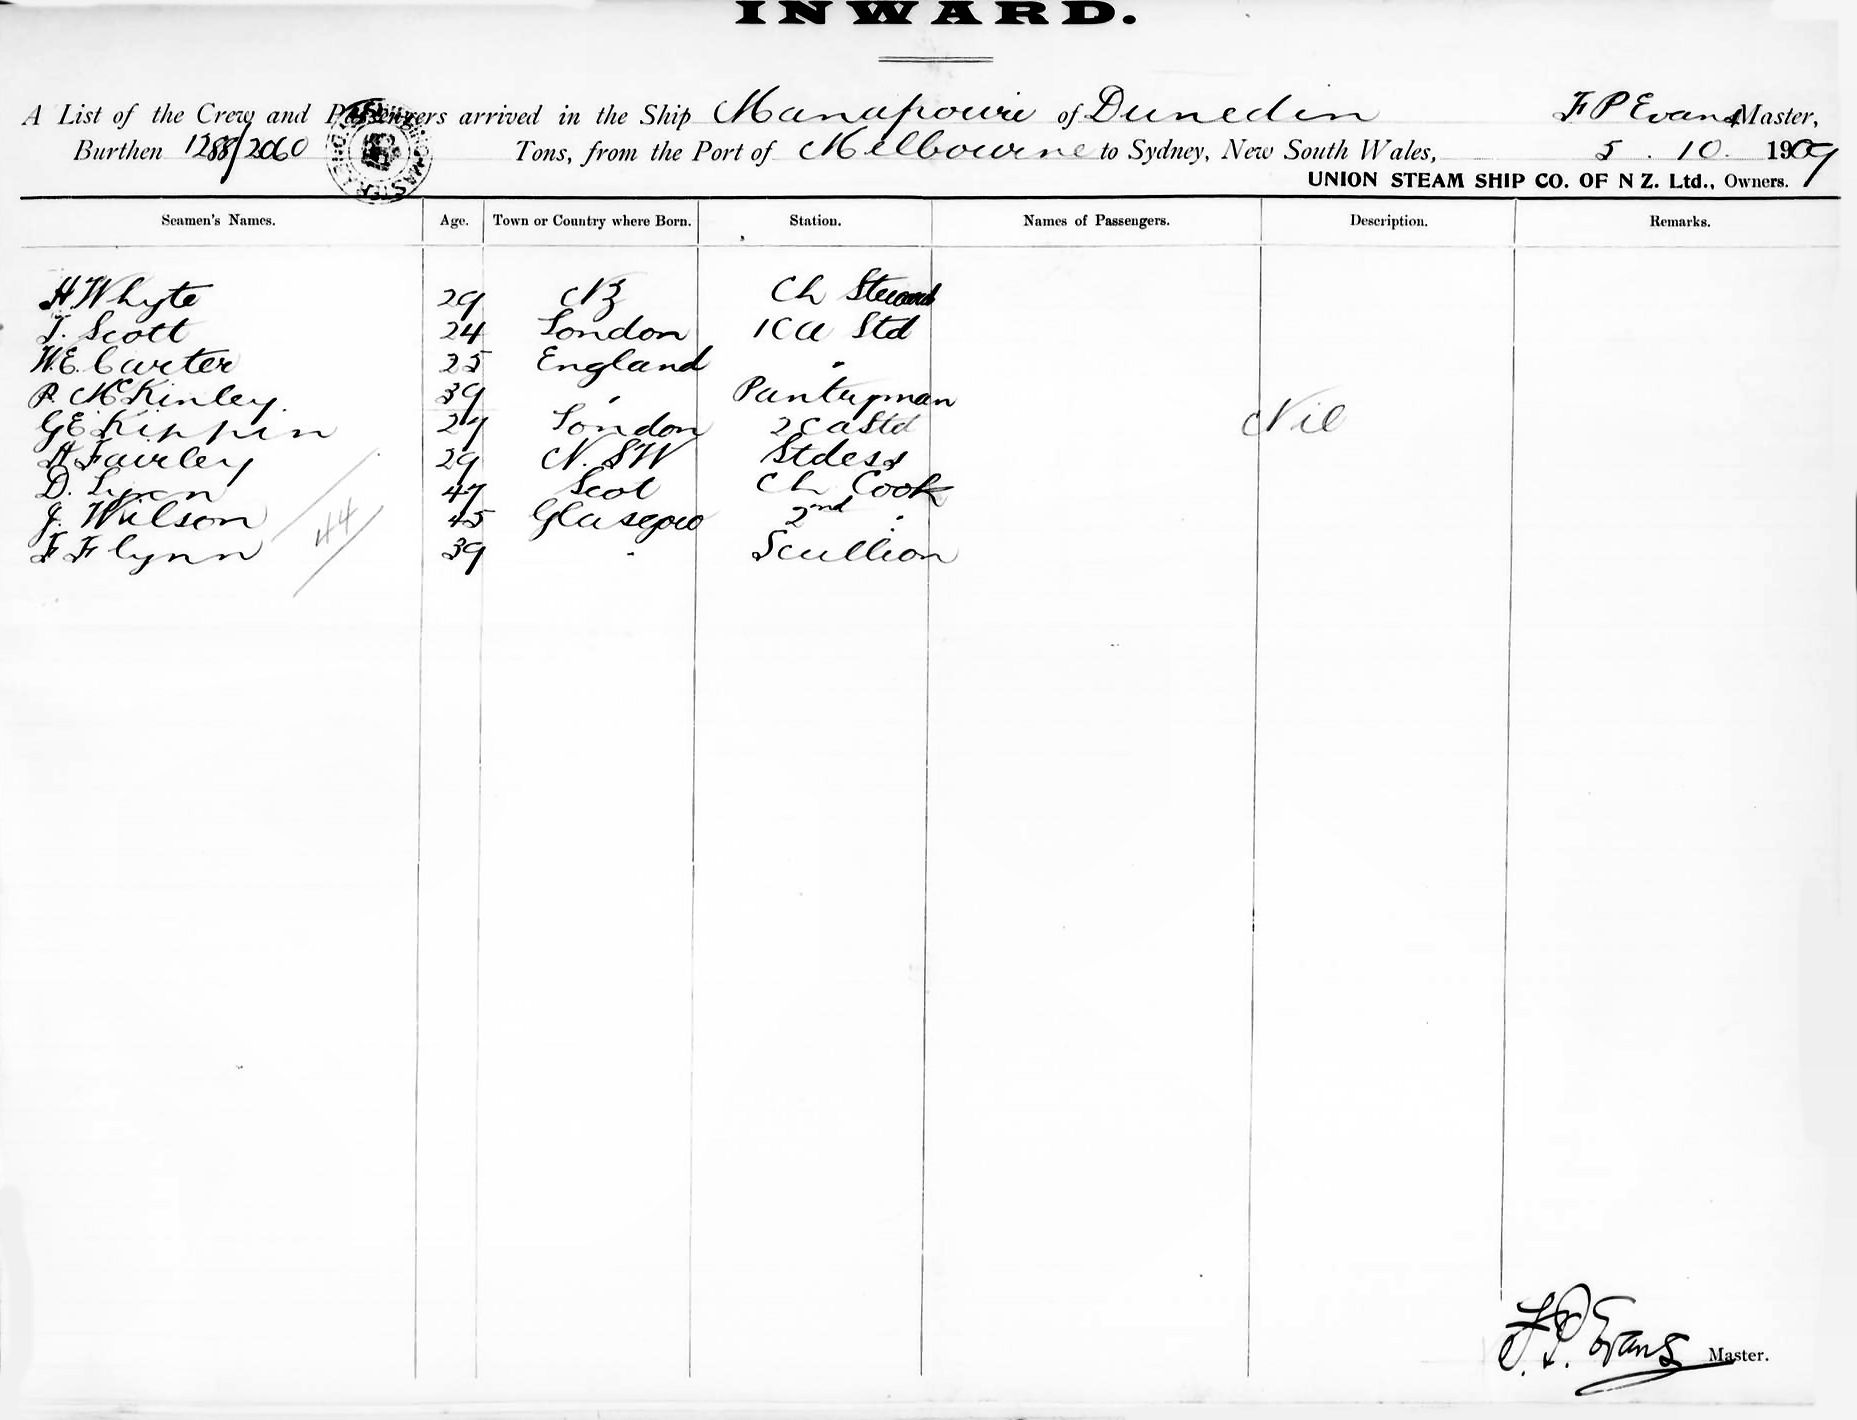 INWARD.
A List of the Crew and Passengers arrived in the Ship Manapouri of Dunedin F P Evans Master,
Burthen 1288/2060 Tons, from the Port of Melbourne to Sydney, New South Wales, 5. 10. 1909
UNION STEAM SHIP CO. OF N Z. Ltd., Owners.
Seamen's Names. Age. Town or Country where Born. Station. Names of Passengers. Description. Remarks.
H Whyte 29 NZ Ch Steward
J. Scott 24 London 1 Ca Std
W.E. Carter 25 England "
P. McKinley. 39 " Pantryman
Nil
G E Kippin 27 London 2 Ca Std
A Fairley 29 N. S W Stdess
D. 47 Scot Ch Cook
J. Wilson 45 Glasgow 2nd "
F Flynn 39 " Scullion
44
F. P. Evans Master.